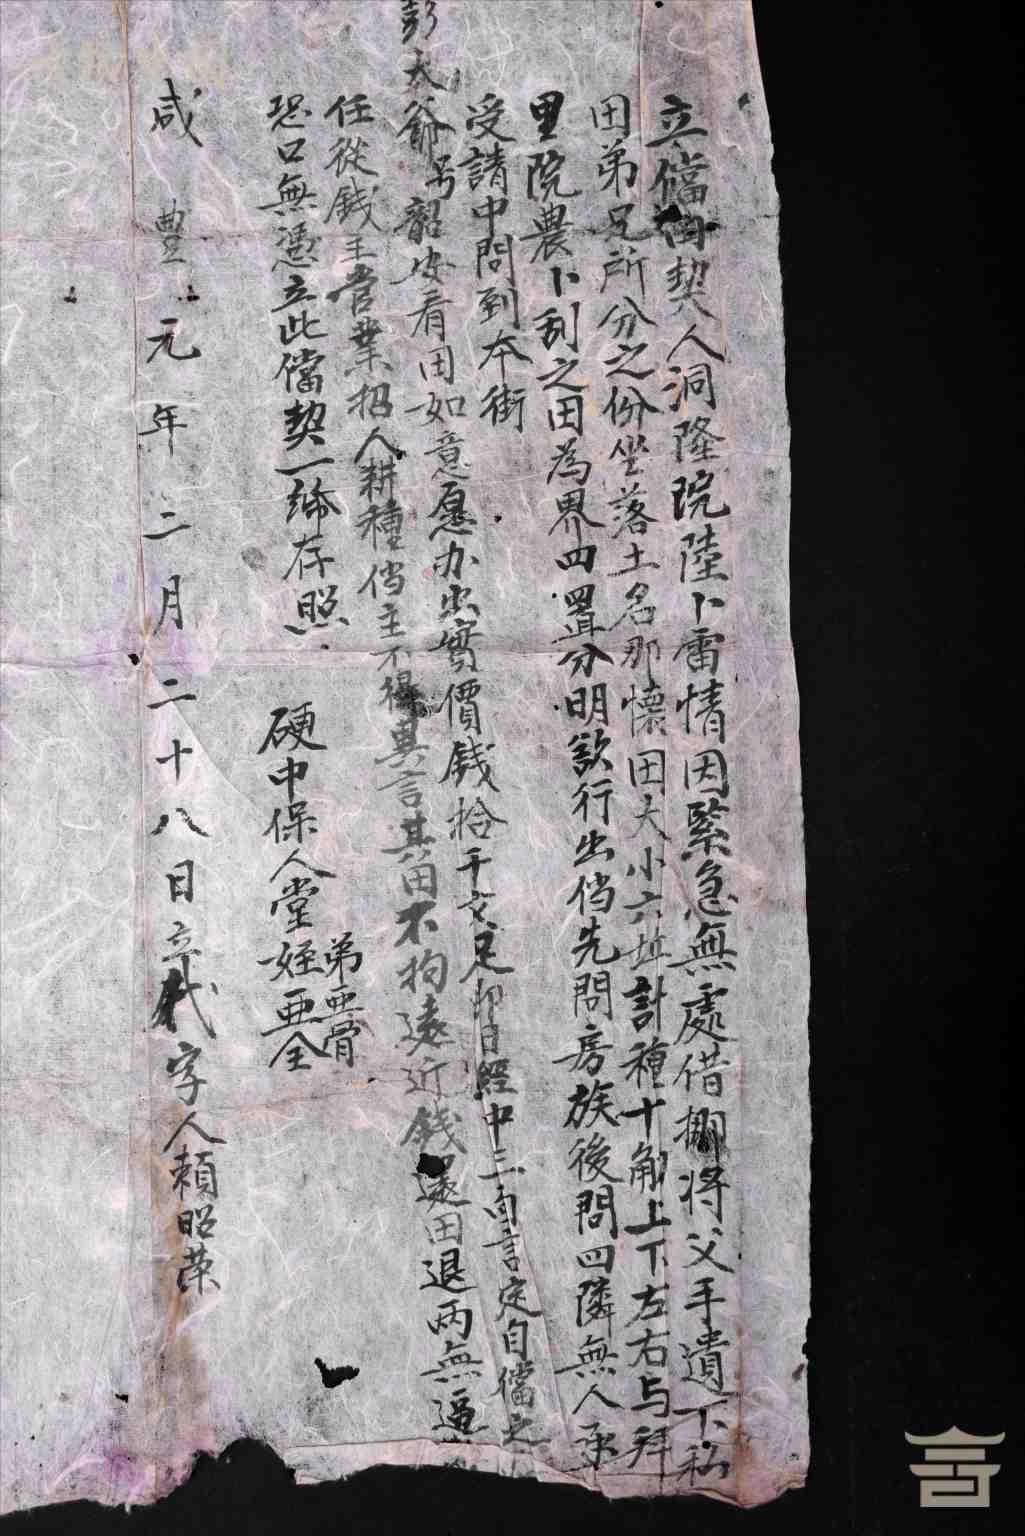 立儅田契人洞隆院陸卜雷情因緊急無處借挪將父手遺下私
田弟兄所分之份坐落土名那懷田大小六坵計種十觔上下左右与拜
里院農卜刮之田為界四置分明欲行出倘先問房族後問四隣無人承
受請中問到本街
彭大爺号韶安看田如意愿办出實價錢拾千文足即日經中三面言定自儅之
任從錢主管業招人耕種倘主不得異言其田不拘遠近錢還田退兩無逼
恐口無憑立此儅契一紙存照
弟亞骨
硬中保人堂姪亞全
咸豐元年二月二十八日立代字人賴昭荣